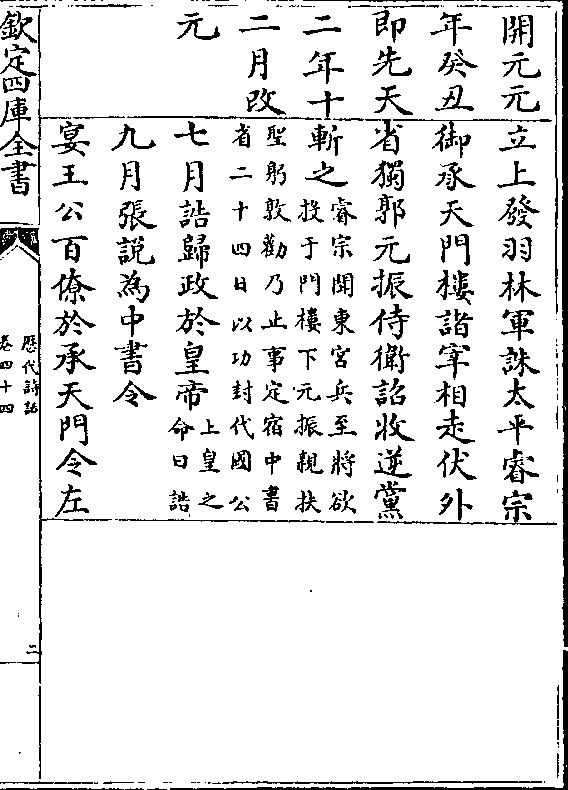 開元元
年癸丑
即先天
二年十
二月改
元
立上發羽林軍誅太平睿宗
御承天門樓諸宰相走伏外
省獨郭元振侍衛詔收逆黨
斬之睿宗聞東宮兵至將欲
投于門樓下元振親扶
聖躬敦勸乃止事定宿中書
省二十四日以功封代國公
七月誥歸政於皇帝上皇之
命曰誥
九月張說為中書令
宴王公百僚於承天門令左
欽定四庫全書
歷代詩話
卷四十四
二